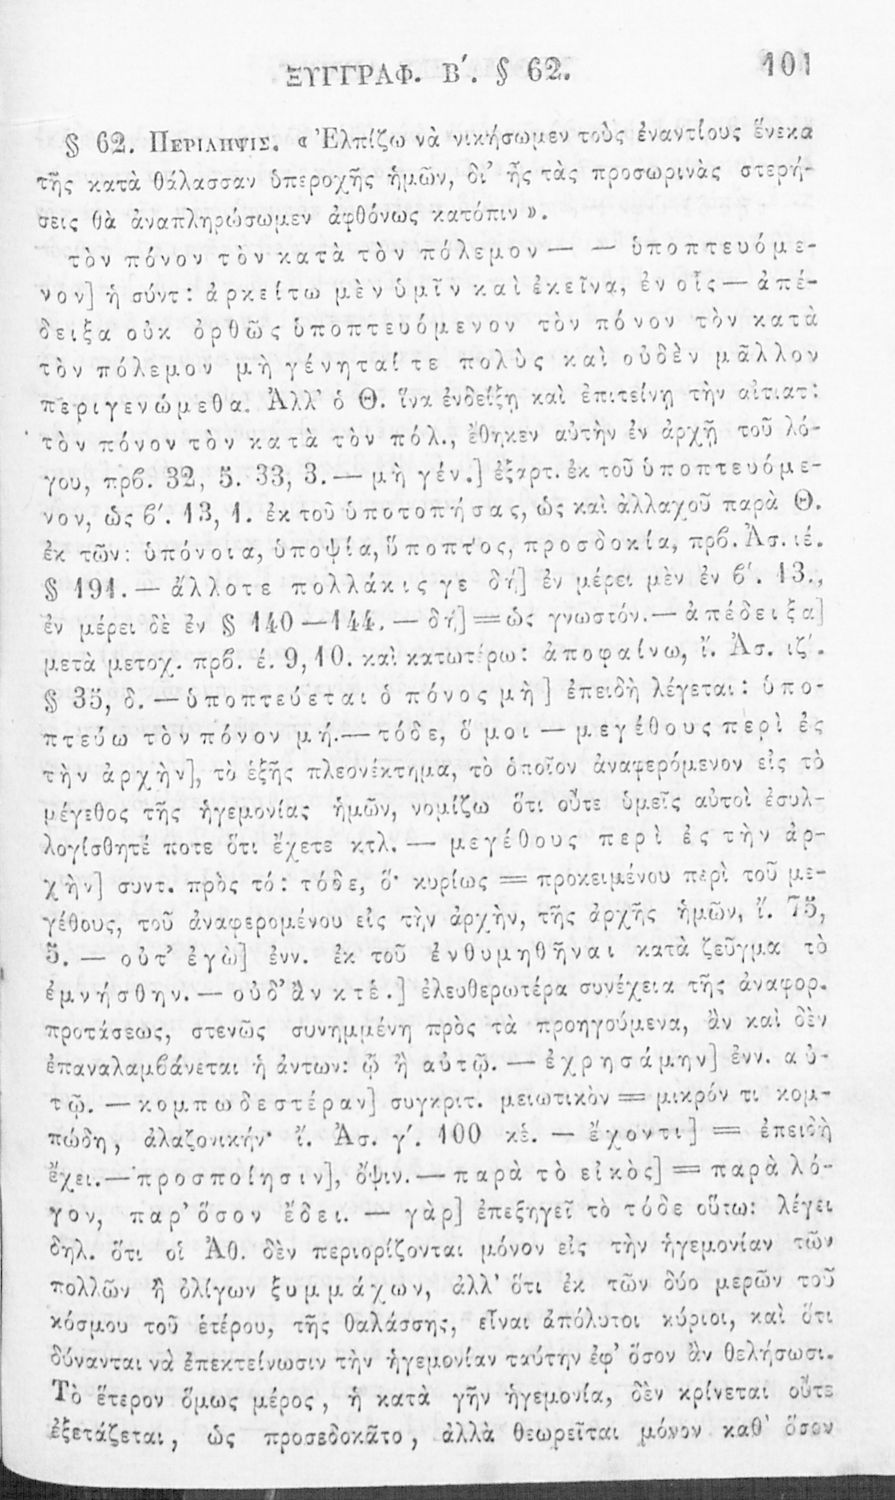 ΞΥΓΓΡΑΦ. Β΄. § 62.
101
§ 62. ΠΕΡΙΛΗΨΙΣ. « Ἐλπίζω νὰ νικήσωμεν τοὺς ἐναντίους ἕνεκα
τῆς κατὰ θάλασσαν ὑπεροχῆς ἡμῶν, δι' ἧς τὰς προσωρινὰς στερή-
σεις θὰ ἀναπληρώσωμεν ἀφθόνως κατόπιν ».
τὸν πόνον τὸν κατὰ τὸν πόλεμον — — ὑποπτευόμε-
νον] ἡ σύντ: ἀρκείτω μὲν ὑμῖν καὶ ἐκεῖνα, ἐν οἷς — ἀπέ-
δειξα οὐκ ὀρθῶς ὑποπτευόμενον τὸν πόνον τὸν κατὰ
τὸν πόλεμον μὴ γένηταί τε πολὺς καὶ οὐδὲν μᾶλλον
περιγενώμεθα. Ἀλλ' ὁ Θ. ἵνα ἐνδείξῃ καὶ ἐπιτείνῃ τὴν αἰτιατ:
τὸν πόνον τὸν κατὰ τὸν πόλ., ἔθηκεν αὐτὴν ἐν ἀρχῇ τοῦ λό-
γου, πρβ. 32, 5. 33, 3. — μὴ γέν.] ἐξαρτ. ἐκ τοῦ ὑποπτευόμε-
νον, ὡς β΄. 13, 1. ἐκ τοῦ ὑποτοπήσας, ὡς καὶ ἀλλαχοῦ παρὰ Θ.
ἐκ τῶν: ὑπόνοια, ὑποψία, ὕποπτος, προσδοκία, πρβ. Ἀσ. ιέ.
§ 191. — ἄλλοτε πολλάκις γε δή] ἐν μέρει μὲν ἐν β΄. 13.,
ἐν μέρει δὲ ἐν § 140 — 144. — δή] = ὡς γνωστόν. — ἀπέδειξα]
μετὰ μετοχ. πρβ. έ. 9, 10. καὶ κατωτέρω: ἀποφαίνω, ἴ. Ἀσ. ιζ΄.
§ 35, δ. — ὑποπτεύεται ὁ πόνος μὴ] ἐπειδὴ λέγεται: ὑπο-
πτεύω τὸν πόνον μή. — τόδε, ὅ μοι — μεγέθους περὶ ἐς
τὴν ἀρχὴν], τὸ ἑξῆς πλεονέκτημα, τὸ ὁποῖον ἀναφερόμενον εἰς τὸ
μέγεθος τῆς ἡγεμονίας ἡμῶν, νομίζω ὅτι οὔτε ὑμεῖς αὐτοὶ ἐσυλ-
λογίσθητέ ποτε ὅτι ἔχετε κτλ. — μεγέθους περὶ ἐς τὴν ἀρ-
χὴν] συντ. πρὸς τό: τόδε, ὅ· κυρίως = προκειμένου περὶ τοῦ με-
γέθους, τοῦ ἀναφερομένου εἰς τὴν ἀρχὴν, τῆς ἀρχῆς ἡμῶν, ἴ. 75,
5. — οὐτ' ἐγὼ] ἐνν. ἐκ τοῦ ἐνθυμηθῆναι κατὰ ζεῦγμα τὸ
ἐμνήσθην. — οὐδ' ἂν κτἑ.] ἐλευθερωτέρα συνέχεια τῆς ἀναφορ.
προτάσεως, στενῶς συνημμένη πρὸς τὰ προηγούμενα, ἂν καὶ δὲν
ἐπαναλαμβάνεται ἡ ἀντων: ᾧ ἢ αὐτῷ. — ἐχρησάμην] ἐνν. αὐ-
τῷ. — κομπωδεστέραν] συγκριτ. μειωτικὸν = μικρόν τι κομ-
πώδη, ἀλαζονικήν· ἴ. Ἀσ. γ΄. 100 κἑ. — ἔχοντι] = ἐπειδὴ
ἔχει. — προσποίησιν], ὄψιν. — παρὰ τὸ εἰκὸς] = παρὰ λό-
γον, παρ' ὅσον ἔδει. — γὰρ] ἐπεξηγεῖ τὸ τόδε οὕτω: λέγει
δηλ. ὅτι οἱ Ἀθ. δὲν περιορίζονται μόνον εἰς τὴν ἡγεμονίαν τῶν
πολλῶν ἢ ὀλίγων ξυμμάχων, ἀλλ' ὅτι ἐκ τῶν δύο μερῶν τοῦ
κόσμου τοῦ ἑτέρου, τῆς θαλάσσης, εἶναι ἀπόλυτοι κύριοι, καὶ ὅτι
δύνανται νὰ ἐπεκτείνωσιν τὴν ἡγεμονίαν ταύτην ἐφ' ὅσον ἂν θελήσωσι.
Τὸ ἕτερον ὅμως μέρος, ἡ κατὰ γῆν ἡγεμονία, δὲν κρίνεται οὔτε
ἐξετάζεται, ὡς προσεδοκᾶτο, ἀλλὰ θεωρεῖται μόνον καθ' ὅσον